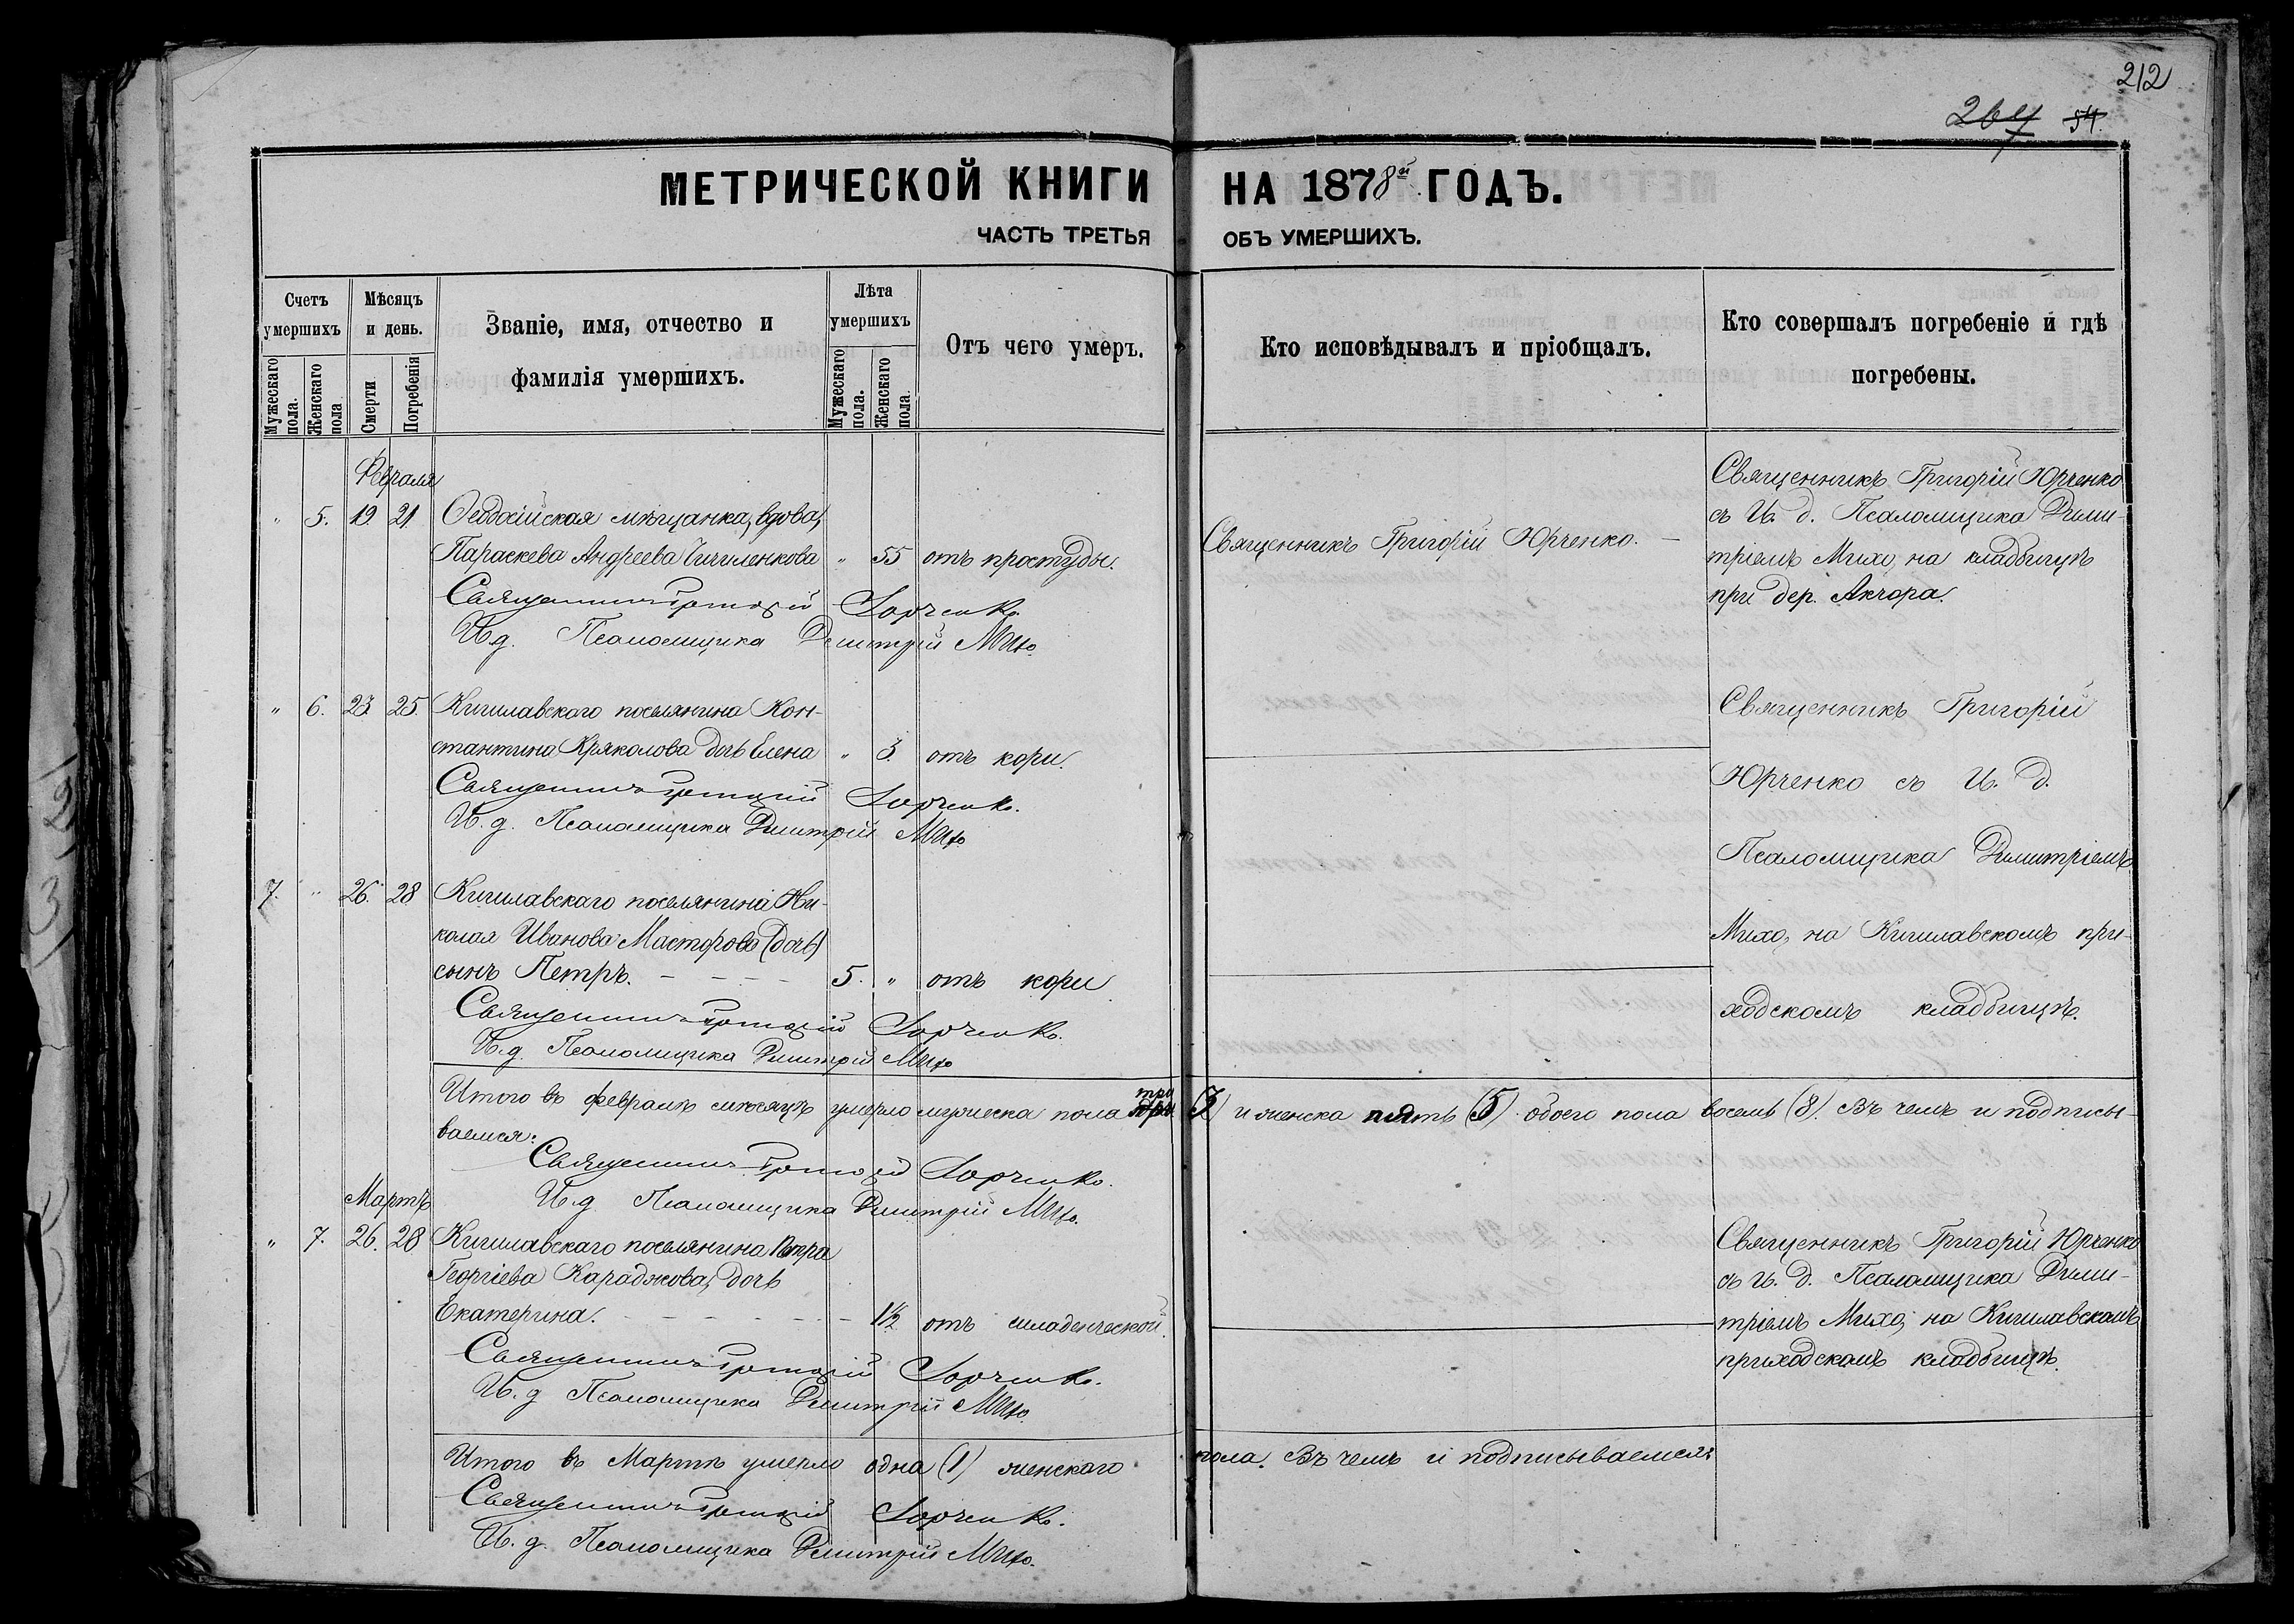 212
264 54.
МЕТРИЧЕСКОЙ КНИГИ НА 1878й ГОДЪ.
ЧАСТЬ ТРЕТЬЯ ОБЪ УМЕРШИХЪ.
Счетъ умершихъ
Мужескаго пола.
Женскаго пола
Мѣсяцъ и день.
Смерти
Погребенія
Званіе, имя, отчество и
фамилія умершихъ.
Лѣта умершихъ
Мужескаго пола.
Женскаго пола.
Отъ чего умеръ.
Кто исповѣдывалъ и пріобщалъ.
Кто совершалъ погребеніе и гдѣ
погребены.
Февраля
" 5. 19. 21 Ѳеодосійская мѣщанка, вдова,
Параскева Андреева Чичиленкова " 55 отъ простуды.
Священникъ Григорій Юрченко.
И.д. Псаломщика Димитрій Михо.
Священникъ Григорій Юрченко. —
Священникъ Григорій Юрченко
съ И. д. Псаломщика Дими-
тріемъ Михо, на кладбищѣ
при дер. Акчора.
" 6. 23. 25. Кишлавскаго поселянина Кон-
стантина Кряколова дочь Елена " 3. отъ кори.
Священникъ Григорій Юрченко.
И.д. Псаломщика Димитрій Михо
Священникъ Григорій
Юрченко съ И. Д.
Псаломщика Димитріемъ
Михо, на Кишлавскомъ при-
ходскомъ кладбищѣ.
7. " 26. 28 Кишлавскаго поселянина Ни-
колая Иванова Масторова (дочь)
сынъ Петръ. - - - - 5. " отъ кори
Священникъ Григорій Юрченко.
И.д. Псаломщика Димитрій Михо
Итого въ февралѣ мѣсяцѣ умерло мужеска пола три (3) и женска пять (5) обоего пола восемь (8). Въ чемъ и подписы-
ваемся:
Священникъ Григорій Юрченко.
И.д Псаломщика Димитрій Михо.
Мартъ
" 7. 26. 28 Кишлавскаго поселянина Петра
Георгіева Караджова, дочь
Екатерина. - - - - - - 1½ отъ младенческой.
Священникъ Григорій Юрченко.
И.д Псаломщика Димитрій Михо.
Священникъ Григорій Юрченко
съ И. д. Псаломщика Дими-
тріемъ Михо, на Кишлавскомъ
приходскомъ кладбищѣ.
Итого въ Мартѣ умерло одна (1) женскаго пола. Въ чемъ и подписываемся:
Священникъ Григорій Юрченко.
И.д. Псаломщика Димитрій Михо.